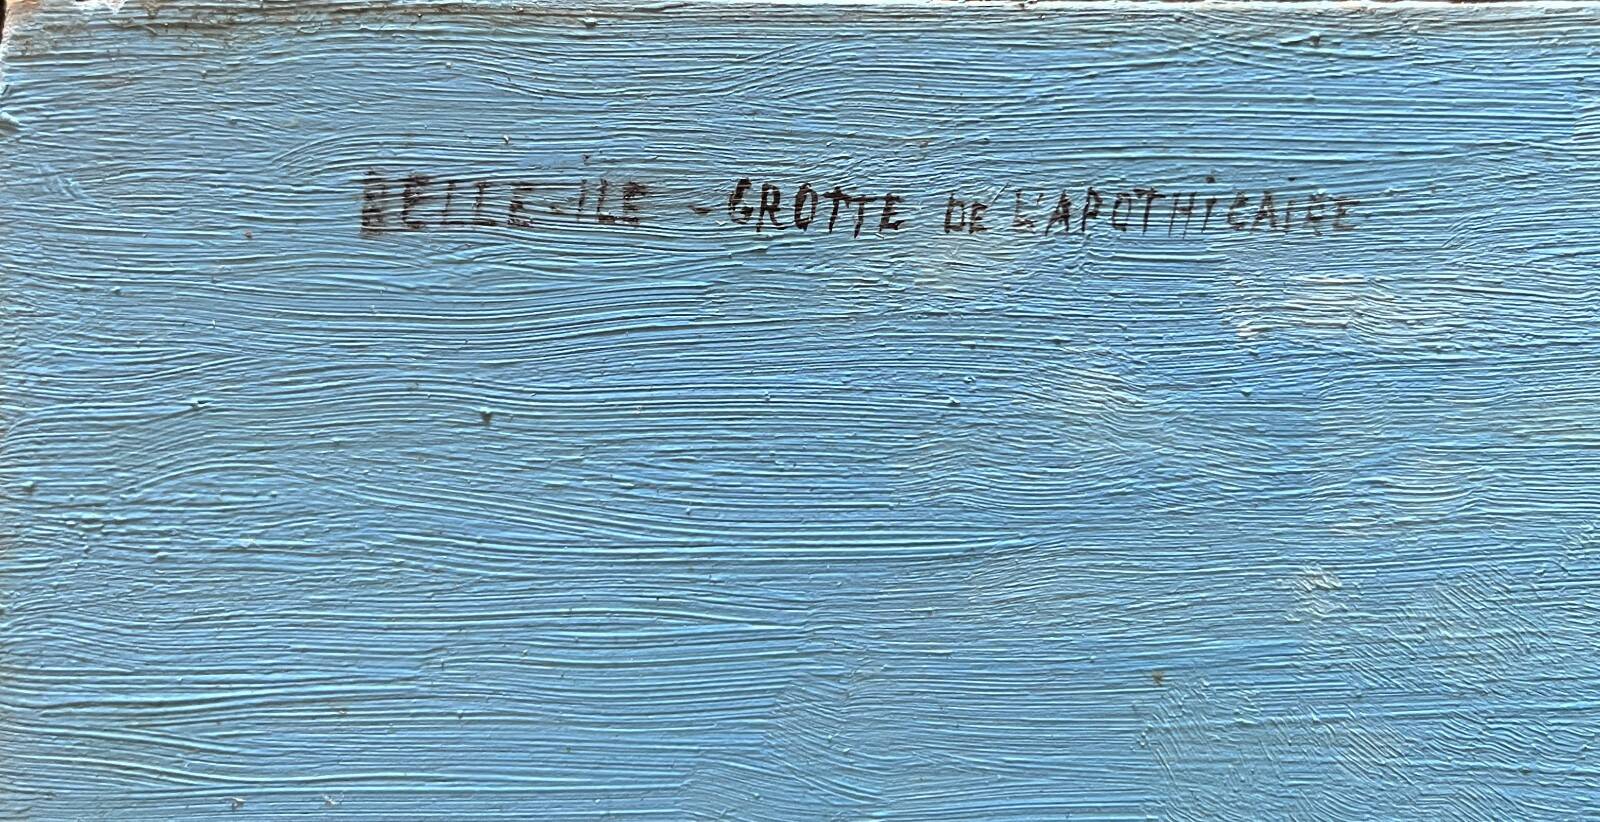 BELLE-ILE - GROTTE DE L'APOTHICAIRE